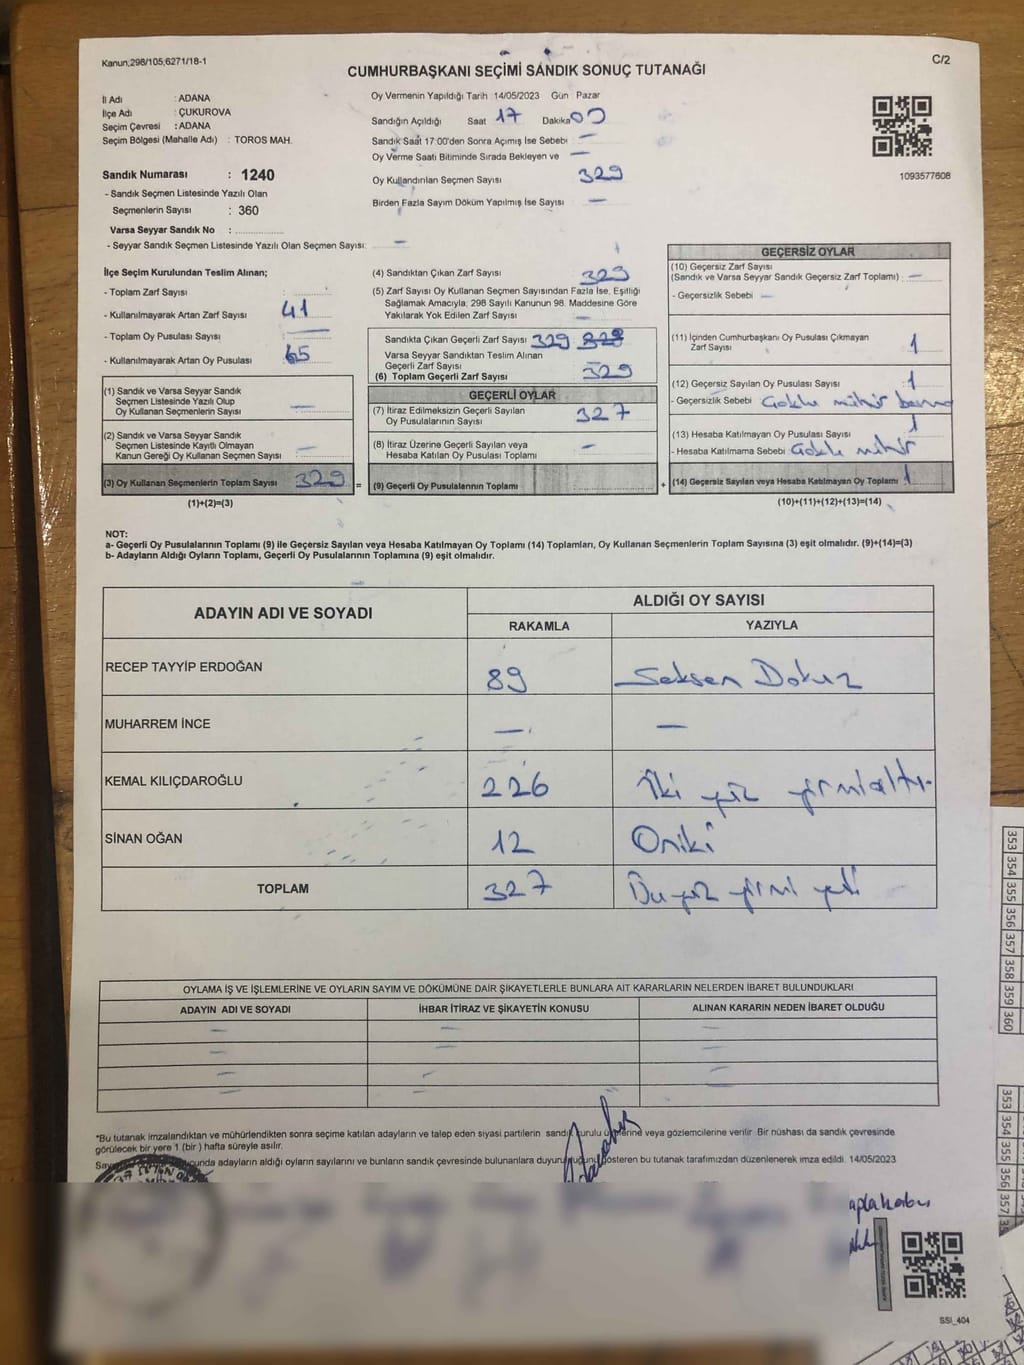 Kanun;298/105;6271/18-1
C/2
CUMHURBAŞKANI SEÇİMİ SANDIK SONUÇ TUTANAĞI
İl Adı : ADANA
İlçe Adı : ÇUKUROVA
Seçim Çevresi : ADANA
Seçim Bölgesi (Mahalle Adı) : TOROS MAH.
Sandık Numarası : 1240
- Sandık Seçmen Listesinde Yazılı Olan
Seçmenlerin Sayısı : 360
Varsa Seyyar Sandık No :
- Seyyar Sandık Seçmen Listesinde Yazılı Olan Seçmen Sayısı: —
Oy Vermenin Yapıldığı Tarih 14/05/2023 Gün Pazar
Sandığın Açıldığı Saat 17 Dakika 00
Sandık Saat 17:00'den Sonra Açımış İse Sebebi —
Oy Verme Saati Bitiminde Sırada Bekleyen ve —
Oy Kullandırılan Seçmen Sayısı 329
Birden Fazla Sayım Döküm Yapılmış İse Sayısı —
1093577608
İlçe Seçim Kurulundan Teslim Alınan;
- Toplam Zarf Sayısı :
- Kullanılmayarak Artan Zarf Sayısı : 41
- Toplam Oy Pusulası Sayısı : —
- Kullanılmayarak Artan Oy Pusulası : 65
(1) Sandık ve Varsa Seyyar Sandık
Seçmen Listesinde Yazılı Olup
Oy Kullanan Seçmenlerin Sayısı : —
(2) Sandık ve Varsa Seyyar Sandık
Seçmen Listesinde Kayıtlı Olmayan
Kanun Gereği Oy Kullanan Seçmen Sayısı : —
(3) Oy Kullanan Seçmenlerin Toplam Sayısı : 329 =
(1)+(2)=(3)
(4) Sandıktan Çıkan Zarf Sayısı 329
(5) Zarf Sayısı Oy Kullanan Seçmen Sayısından Fazla İse, Eşitliği
Sağlamak Amacıyla, 298 Sayılı Kanunun 98. Maddesine Göre
Yakılarak Yok Edilen Zarf Sayısı —
Sandıkta Çıkan Geçerli Zarf Sayısı 329
Varsa Seyyar Sandıktan Teslim Alınan
Geçerli Zarf Sayısı —
(6) Toplam Geçerli Zarf Sayısı 329
GEÇERLİ OYLAR
(7) İtiraz Edilmeksizin Geçerli Sayılan
Oy Pusulalarının Sayısı 327
(8) İtiraz Üzerine Geçerli Sayılan veya
Hesaba Katılan Oy Pusulası Toplamı —
(9) Geçerli Oy Pusulalarının Toplamı +
GEÇERSİZ OYLAR
(10) Geçersiz Zarf Sayısı
(Sandık ve Varsa Seyyar Sandık Geçersiz Zarf Toplamı) : —
- Geçersizlik Sebebi —
(11) İçinden Cumhurbaşkanı Oy Pusulası Çıkmayan
Zarf Sayısı 1
(12) Geçersiz Sayılan Oy Pusulası Sayısı 1
- Geçersizlik Sebebi mühür
(13) Hesaba Katılmayan Oy Pusulası Sayısı 1
- Hesaba Katılmama Sebebi mühür
(14) Geçersiz Sayılan veya Hesaba Katılmayan Oy Toplamı 1
(10)+(11)+(12)+(13)=(14)
NOT:
a- Geçerli Oy Pusulalarının Toplamı (9) ile Geçersiz Sayılan veya Hesaba Katılmayan Oy Toplamı (14) Toplamları, Oy Kullanan Seçmenlerin Toplam Sayısına (3) eşit olmalıdır. (9)+(14)=(3)
b- Adayların Aldığı Oyların Toplamı, Geçerli Oy Pusulalarının Toplamına (9) eşit olmalıdır.
ADAYIN ADI VE SOYADI
ALDIĞI OY SAYISI
RAKAMLA YAZIYLA
RECEP TAYYİP ERDOĞAN 89 Seksen Dokuz
MUHARREM İNCE — —
KEMAL KILIÇDAROĞLU 226 İki yüz yirmialtı
SİNAN OĞAN 12 Oniki
TOPLAM 327 yirmi yedi
OYLAMA İŞ VE İŞLEMLERİNE VE OYLARIN SAYIM VE DÖKÜMÜNE DAİR ŞİKAYETLERLE BUNLARA AİT KARARLARIN NELERDEN İBARET BULUNDUKLARI
ADAYIN ADI VE SOYADI İHBAR İTİRAZ VE ŞİKAYETİN KONUSU ALINAN KARARIN NEDEN İBARET OLDUĞU
— — —
— — —
— — —
— — —
*Bu tutanak imzalandıktan ve mühürlendikten sonra seçime katılan adayların ve talep eden siyasi partilerin sandık kurulu üyelerine veya gözlemcilerine verilir. Bir nüshası da sandık çevresinde
görülecek bir yere 1 (bir) hafta süreyle asılır.
adayların aldığı oyların sayılarını ve bunların sandık çevresinde bulunanlara gösteren bu tutanak tarafımızdan düzenlenerek imza edildi. 14/05/2023
SSI_404
353 354 355 356 357 358 359 360
353 354 355 356 357